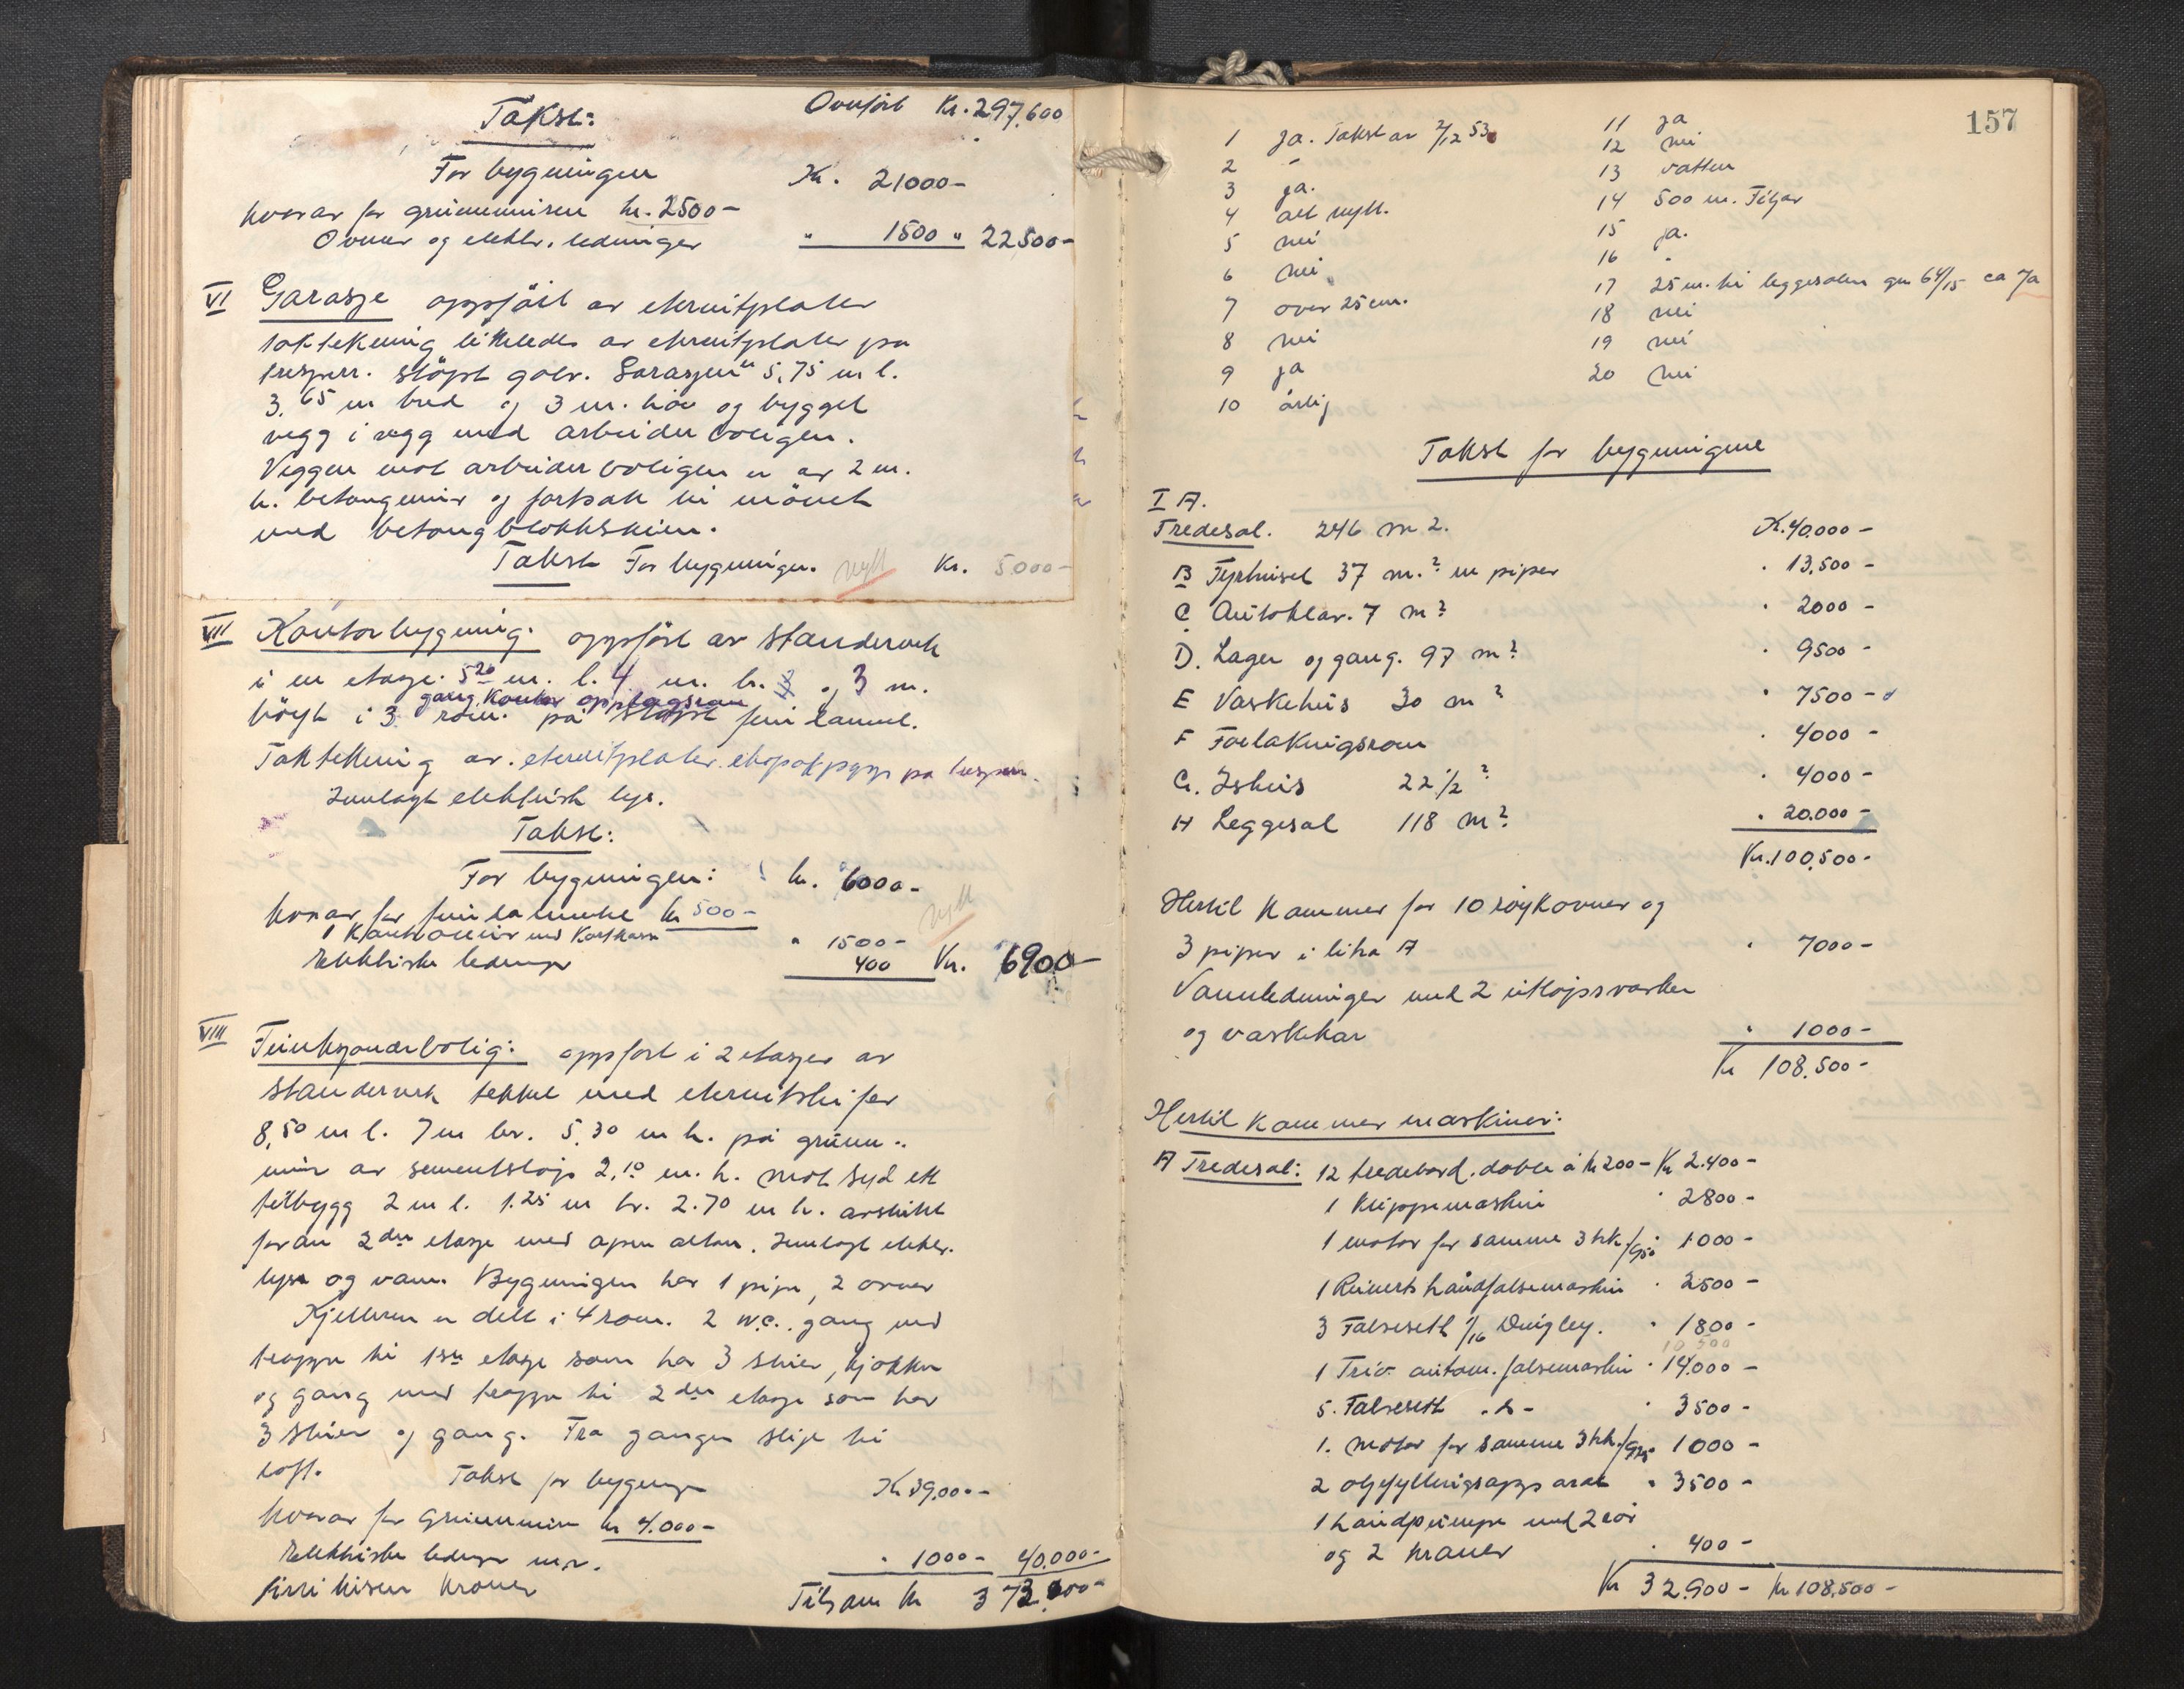 Takst: Overført Kr. 297.600
For bygningen Kr. 21000-
hvorav for grunnmuren kr. 2500-
Ovner og elektr. ledninger " 1500 " 22500-
VI Garasje oppført av eternitplater
taktekning likeledes av eternitplater på
tresperr. støpt golv. Garasjen er 5,75 m l.
3,65 m bred og 3 m. høi og bygget
vegg i vegg med arbeiderboligen.
Veggen mot arbeiderboligen er av 2 m.
h. betongmur og fortsatt til mønet
med betongblokkstein.
Takst For bygningen. nytt Kr. 5000-
VII Kontorbygning: oppført av standerverk
i en etasje. 5 20 m. l. 4 m. br. og 3 m.
gang, Kontor opplagsrom
høyt i 3 rom. på støpt fundament.
Taktekking av eternitplater på tresperr.
Innlagt elektrisk lys.
Takst:
For bygningen: kr. 6000-
hvorav for fundamentet kr 500- nytt
1 Kontorovn med " 1500-
Elektriske ledninger 400 Kr. 6900-
VIII Funksjonærbolig: oppført i 2 etasjer av
standerverk tekket med eternitskifer
8,50 m l. 7 m br. 5,30 m h. på grunn-
mur av sementstøp 2,10 m. h. Mot syd ett
tilbygg 2 m l. 1.25 m br. 2.70 m h. avsluttet
foran 2den etasje med åpen altan. Innlagt elektr.
lys og vann. Bygningen har 1 pipe, 2 ovner
Kjelleren er delt i 4 rom. 2 W.C. gang med
trappe til 1ste etasje som har 3 stuer, kjøkken
og gang med trappe til 2den etasje som har
3 stuer og gang. Fra gangen stige til
loft. Takst for bygningen Kr 39.000-
hvorav for Grunnmur kr 4.000-
Elektriske ledninger m.v. " 1000- 40.000-
kroner Tilsam kr 372.000-
157
1 Ja. Takst av 2/12 53
2 "
3 ja.
4 alt nytt.
5 nei
6 nei
7 over 25 cm.
8 nei
9 ja
10 årlig
11 ja
12 nei
13 vatten
14 500 m. Filjar
15 ja.
16 "
17 25 m. til leggesalen gm 64/15 ca 7a
18 nei
19 nei
20 nei
Takst for bygningene
I A.
Tredesal. 246 m2. K. 40.000-
B Fyrhuset 37 m.2 m piper " 13.500-
C Autoklav. 7 m2 " 2000-
D. Lager og gang. 97 m2 " 9500-
E Vaskehus 30 m2 " 7500-
F Forlakningsrom " 4000-
G. Ishus 22 1/2 2 " 4000-
H Leggesal 118 m2 " 20.000-
Kr. 100.500-
Hertil kommer for 10 røykovner og
3 piper i litra A " 7000-
Vannledninger med 2 utløpsvasker
og vaskekar " 1000-
Kr 108.500-
Hertil kommer maskiner:
A Tredesal: 12 tredebord. doble á kr 200- Kr 2.400-
1 Klippemaskin " 2800-
1 motor for samme 3 hk./950 " 1000-
1 Reinerts håndfalsemaskin " 2500-
3 Falsesett 1/16 Dingley. " 1800-
10 500
1 Trio autom. falsemaskin " 14.000-
5. Falsesett -"- " 3500-
1. Motor for samme 3 hk./ " 1000-
2 oljefyllingsapparat " 3500-
1 håndpumpe med 2 rør
og 2 kraner " 400-
Kr 32.900- kr 108.500-